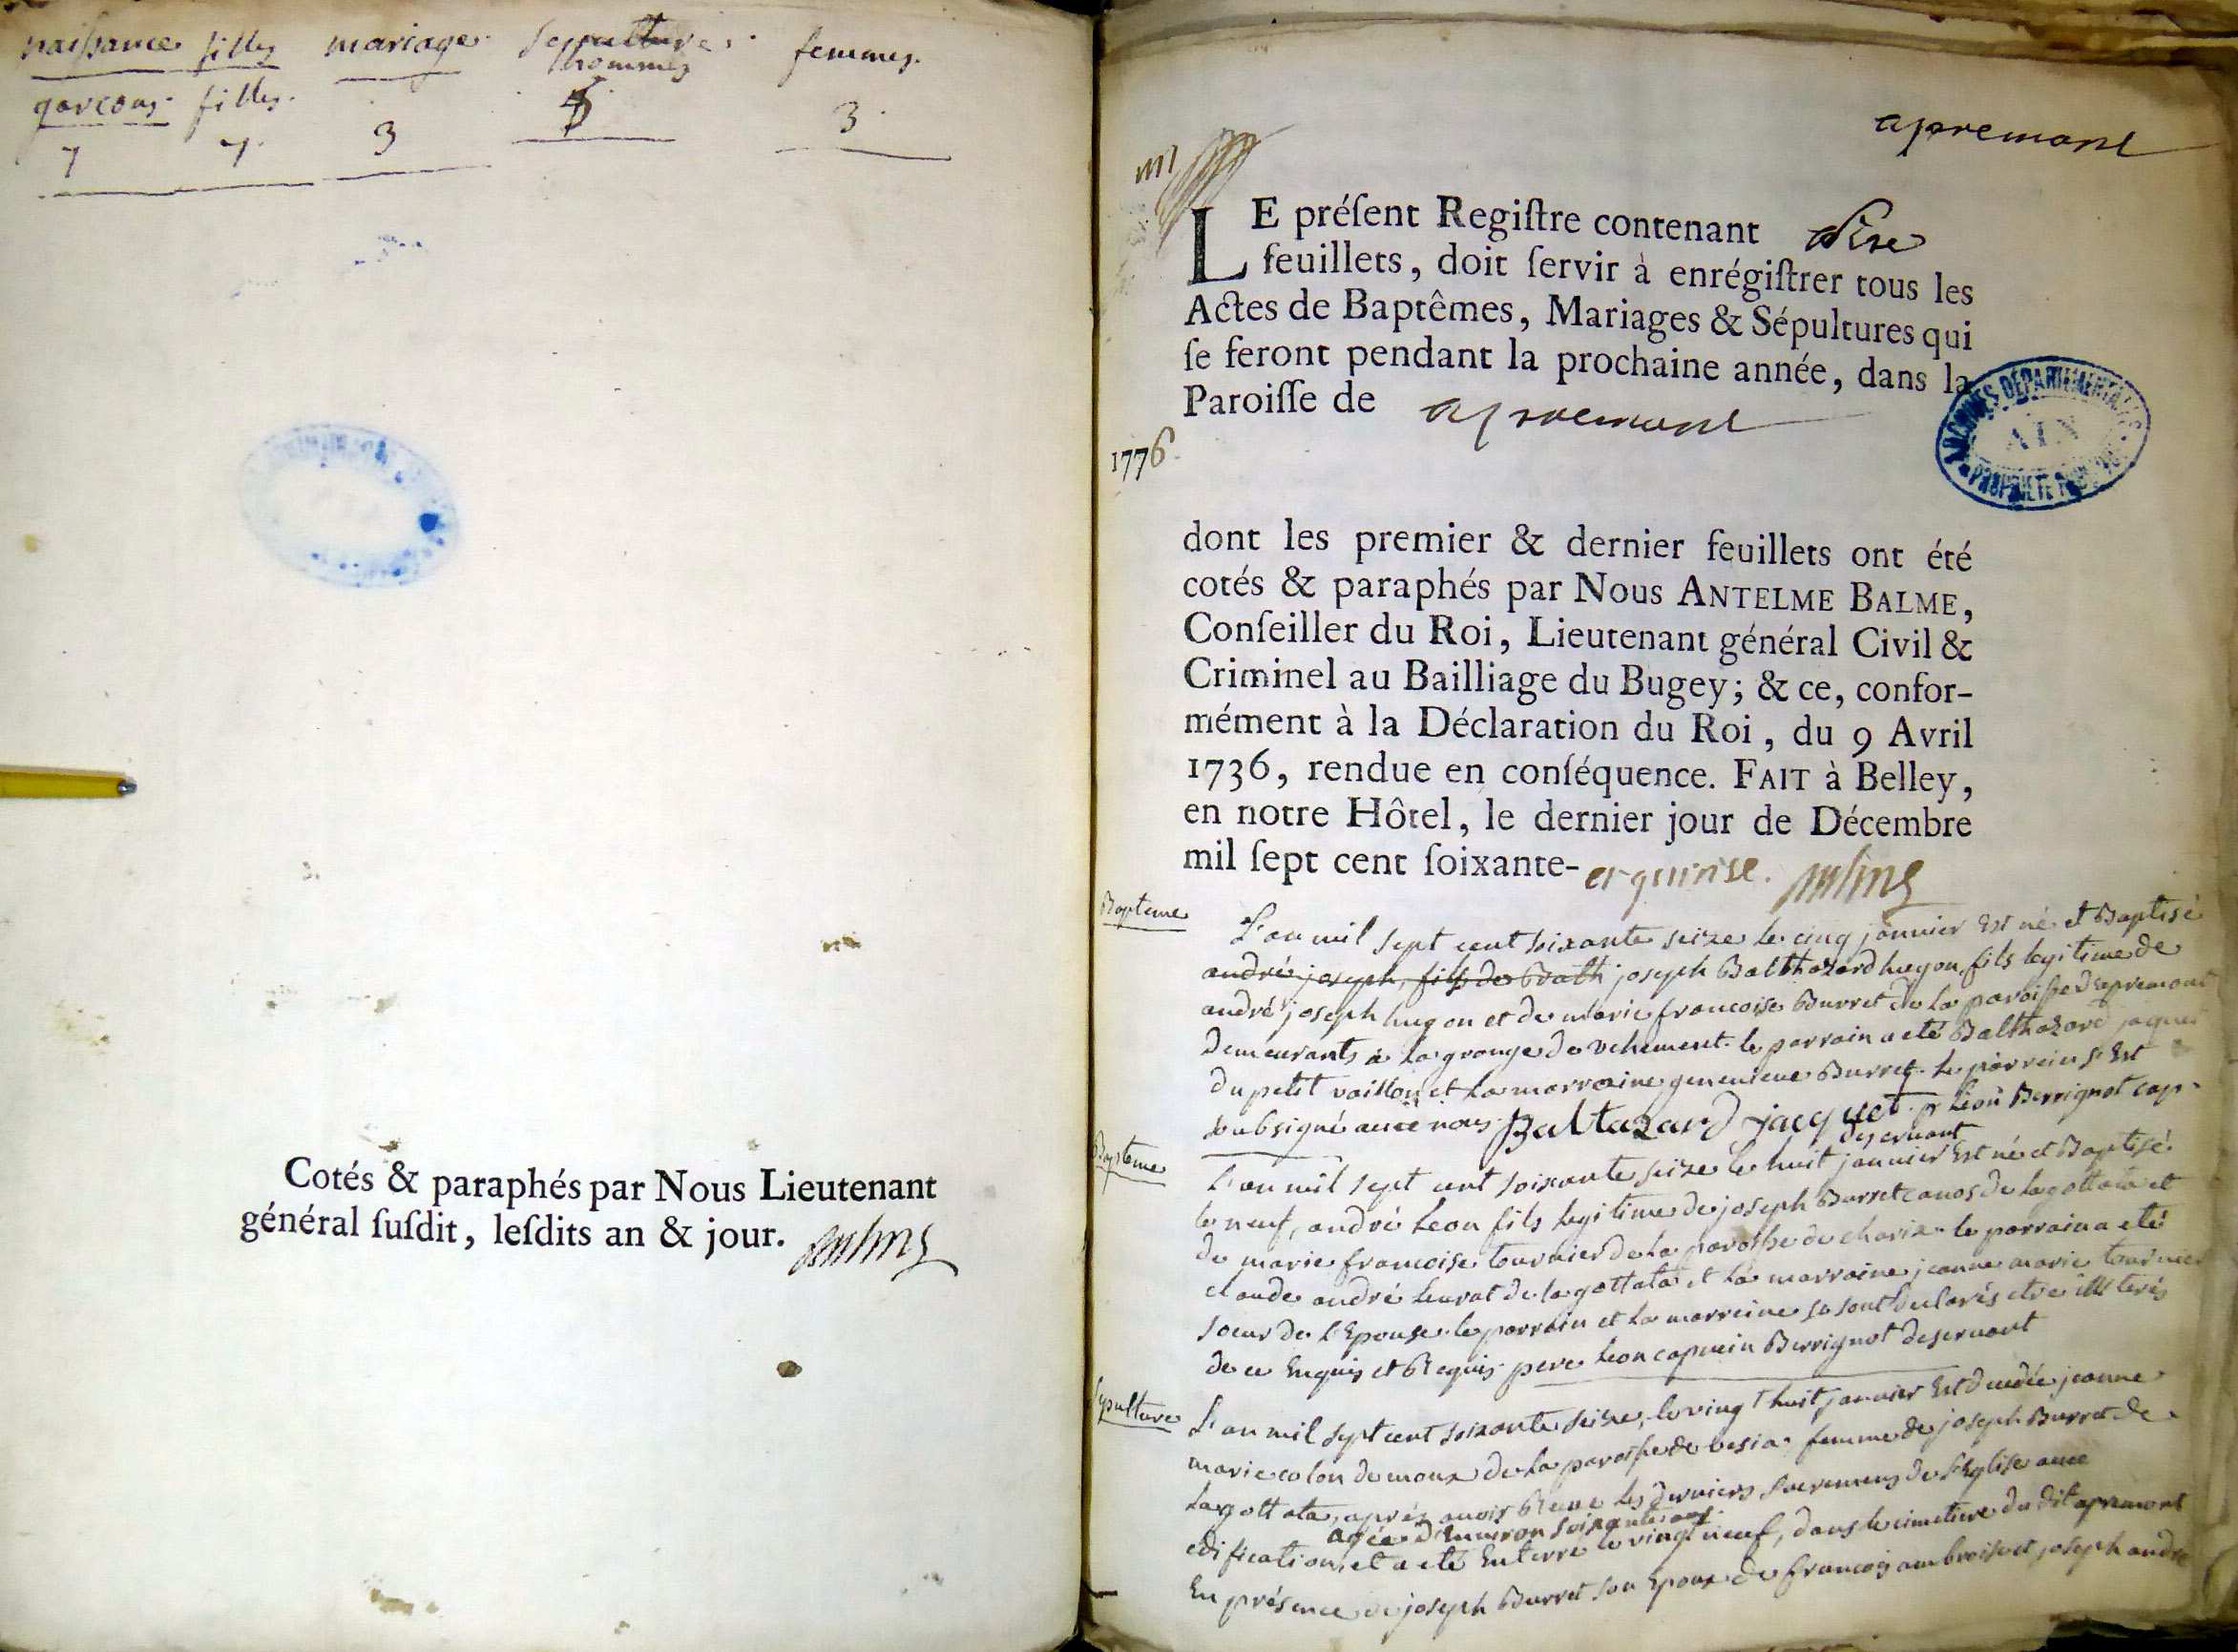 naissance filles mariage sepulture femmes.
hommes
garcons. filles.
7 7 3 3
Cotés & paraphés par Nous Lieutenant
général susdit, lesdits an & jour.
apremont
LE préſent Regiſtre contenant
feuillets, doit ſervir à enrégiſtrer tous les
Actes de Baptêmes, Mariages & Sépultures qui
ſe feront pendant la prochaine année, dans la
Paroiſſe de apremont
ARCHIVES DÉPARTEMENTALES
AIN
PROPRIÉTÉ PUBLIQUE
1776
dont les premier & dernier feuillets ont été
cotés & paraphés par Nous ANTELME BALME,
Conſeiller du Roi, Lieutenant général Civil &
Criminel au Bailliage du Bugey; & ce, confor-
mément à la Déclaration du Roi, du 9 Avril
1736, rendue en conſéquence. FAIT à Belley,
en notre Hôtel, le dernier jour de Décembre
mil ſept cent ſoixante- et quinse.
Bapteme
L'an mil sept cent soixante seize le cinq janvier Est né et Baptisé
andré joseph, fils de Balth joseph Balthazard hugon fils legitime de
andré joseph hugon et de marie francoise Burret de la paroisse d'apremont
demeurants a la grange de vehement. le parrain a eté Balthazard jaquet
du petit vaillon et la marraine genevieve Burret. le parrein s'Est
soubsigné avec nous. Baltazard jacquet. pr léon Berrignot cap.
deservant
Bapteme
L'an mil sept cent soixante seize le huit janvier Est né et Baptisé
le neuf, andré leon fils legitime de joseph Burret canos de la gottata et
de marie francoise tournier de la paroisse de charix. le parrain a eté
claude andré levrat de la gottata et la marraine jeanne marie tournier
soeur de l'Epouse. le parrain et la marreine se sont declarés etre illiterés
de ce Enquis et Requis. pere leon capucin Berrignot deservant
Sepulture
L'an mil sept cent soixante seize, le vingt huit janvier Est decedée jeanne
marie colon de moux de la paroisse de vesia. femme de joseph Burret de
la gottata, aprés avoir Recue les derniers sacremens de l'Eglise avec
agée d'Environ soixante ans.
edification, et a eté Enterré le vingt neuf, dans le cimetiere du dit apremont
En présence de joseph Burret son Epoux de francois ambroise et joseph andré